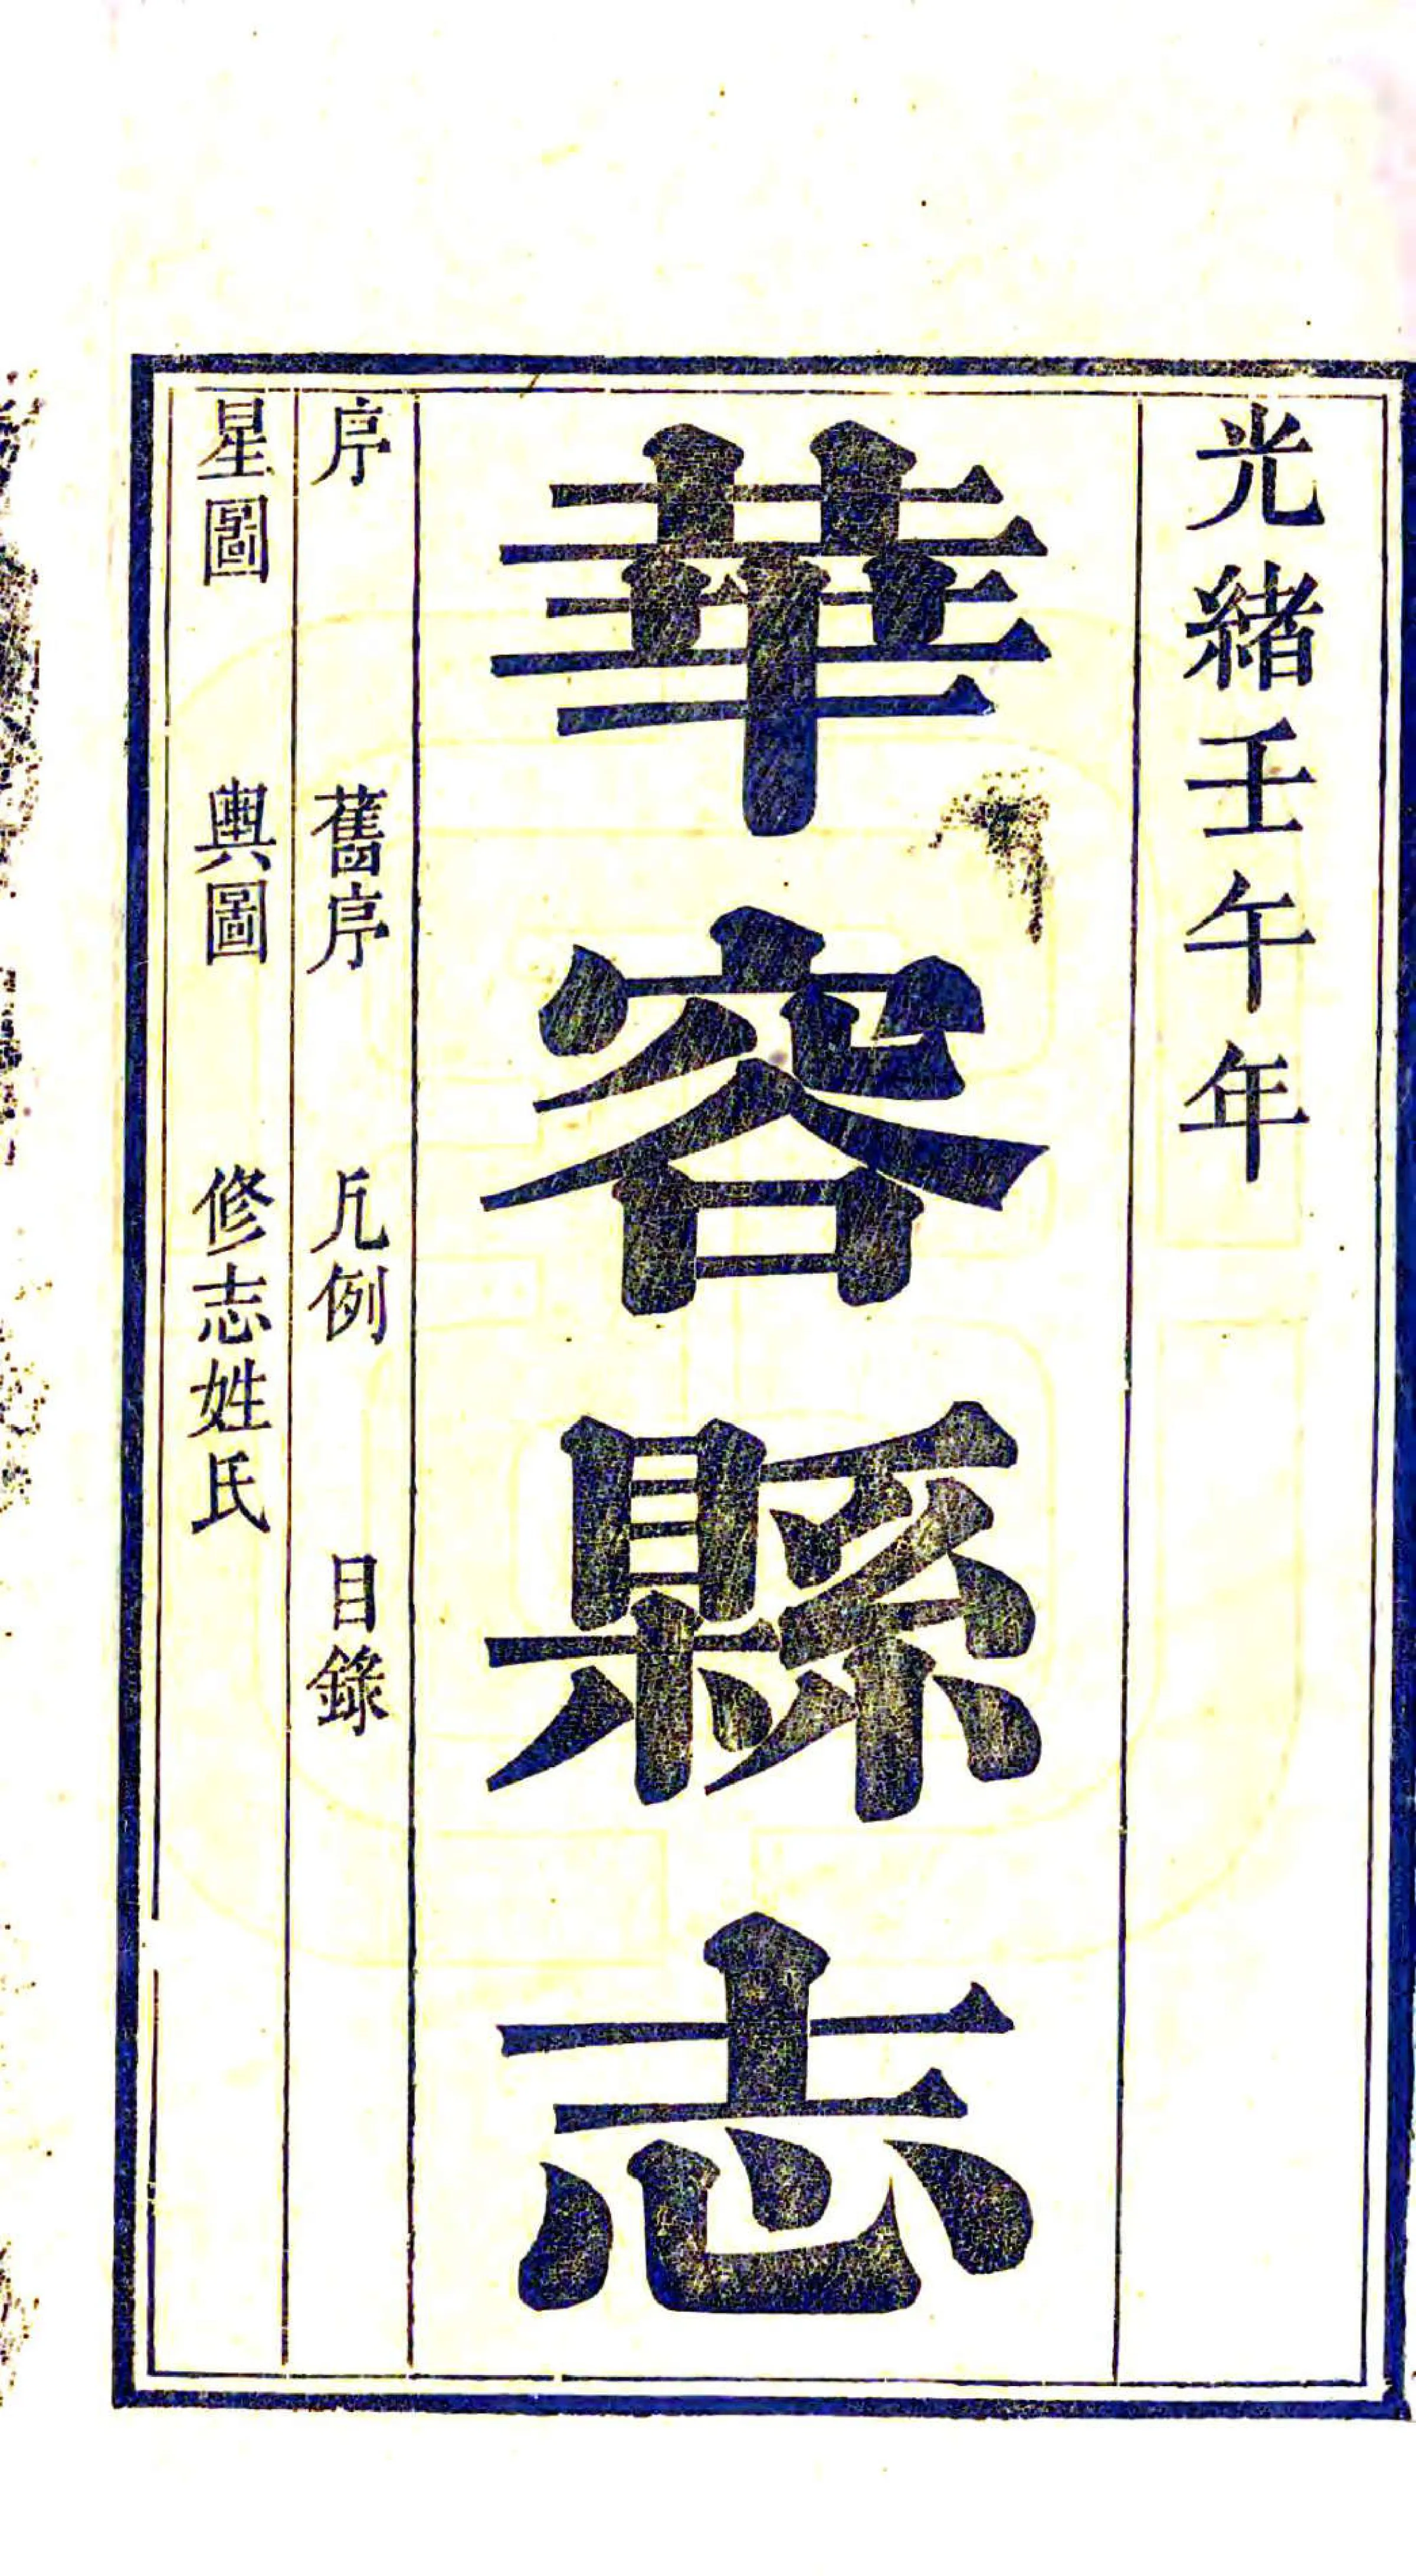 光緒壬午年
華容縣志
序　舊序　凡例　目錄
星圖　輿圖　修志姓氏